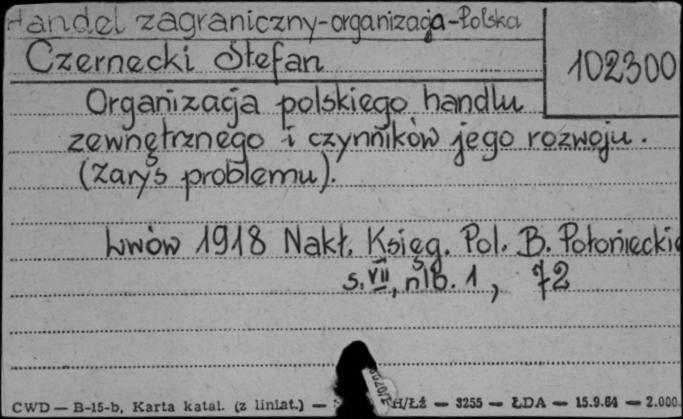 Handel zagraniczny-organizacja-Polska
Czernecki Stefan
102300
Organizacja polskiego handlu
zewnętrznego i czynników jego rozwoju.
(Zarys problemu).
Lwów 1918 Nakł. Księg. Pol. B. Połonieckie
s. VII, nlb. 1, 72
CWD — B-15-b, Karta katal. (z liniat.) — H/Łż — 3255 — ŁDA — 15.9.64 — 2.000.